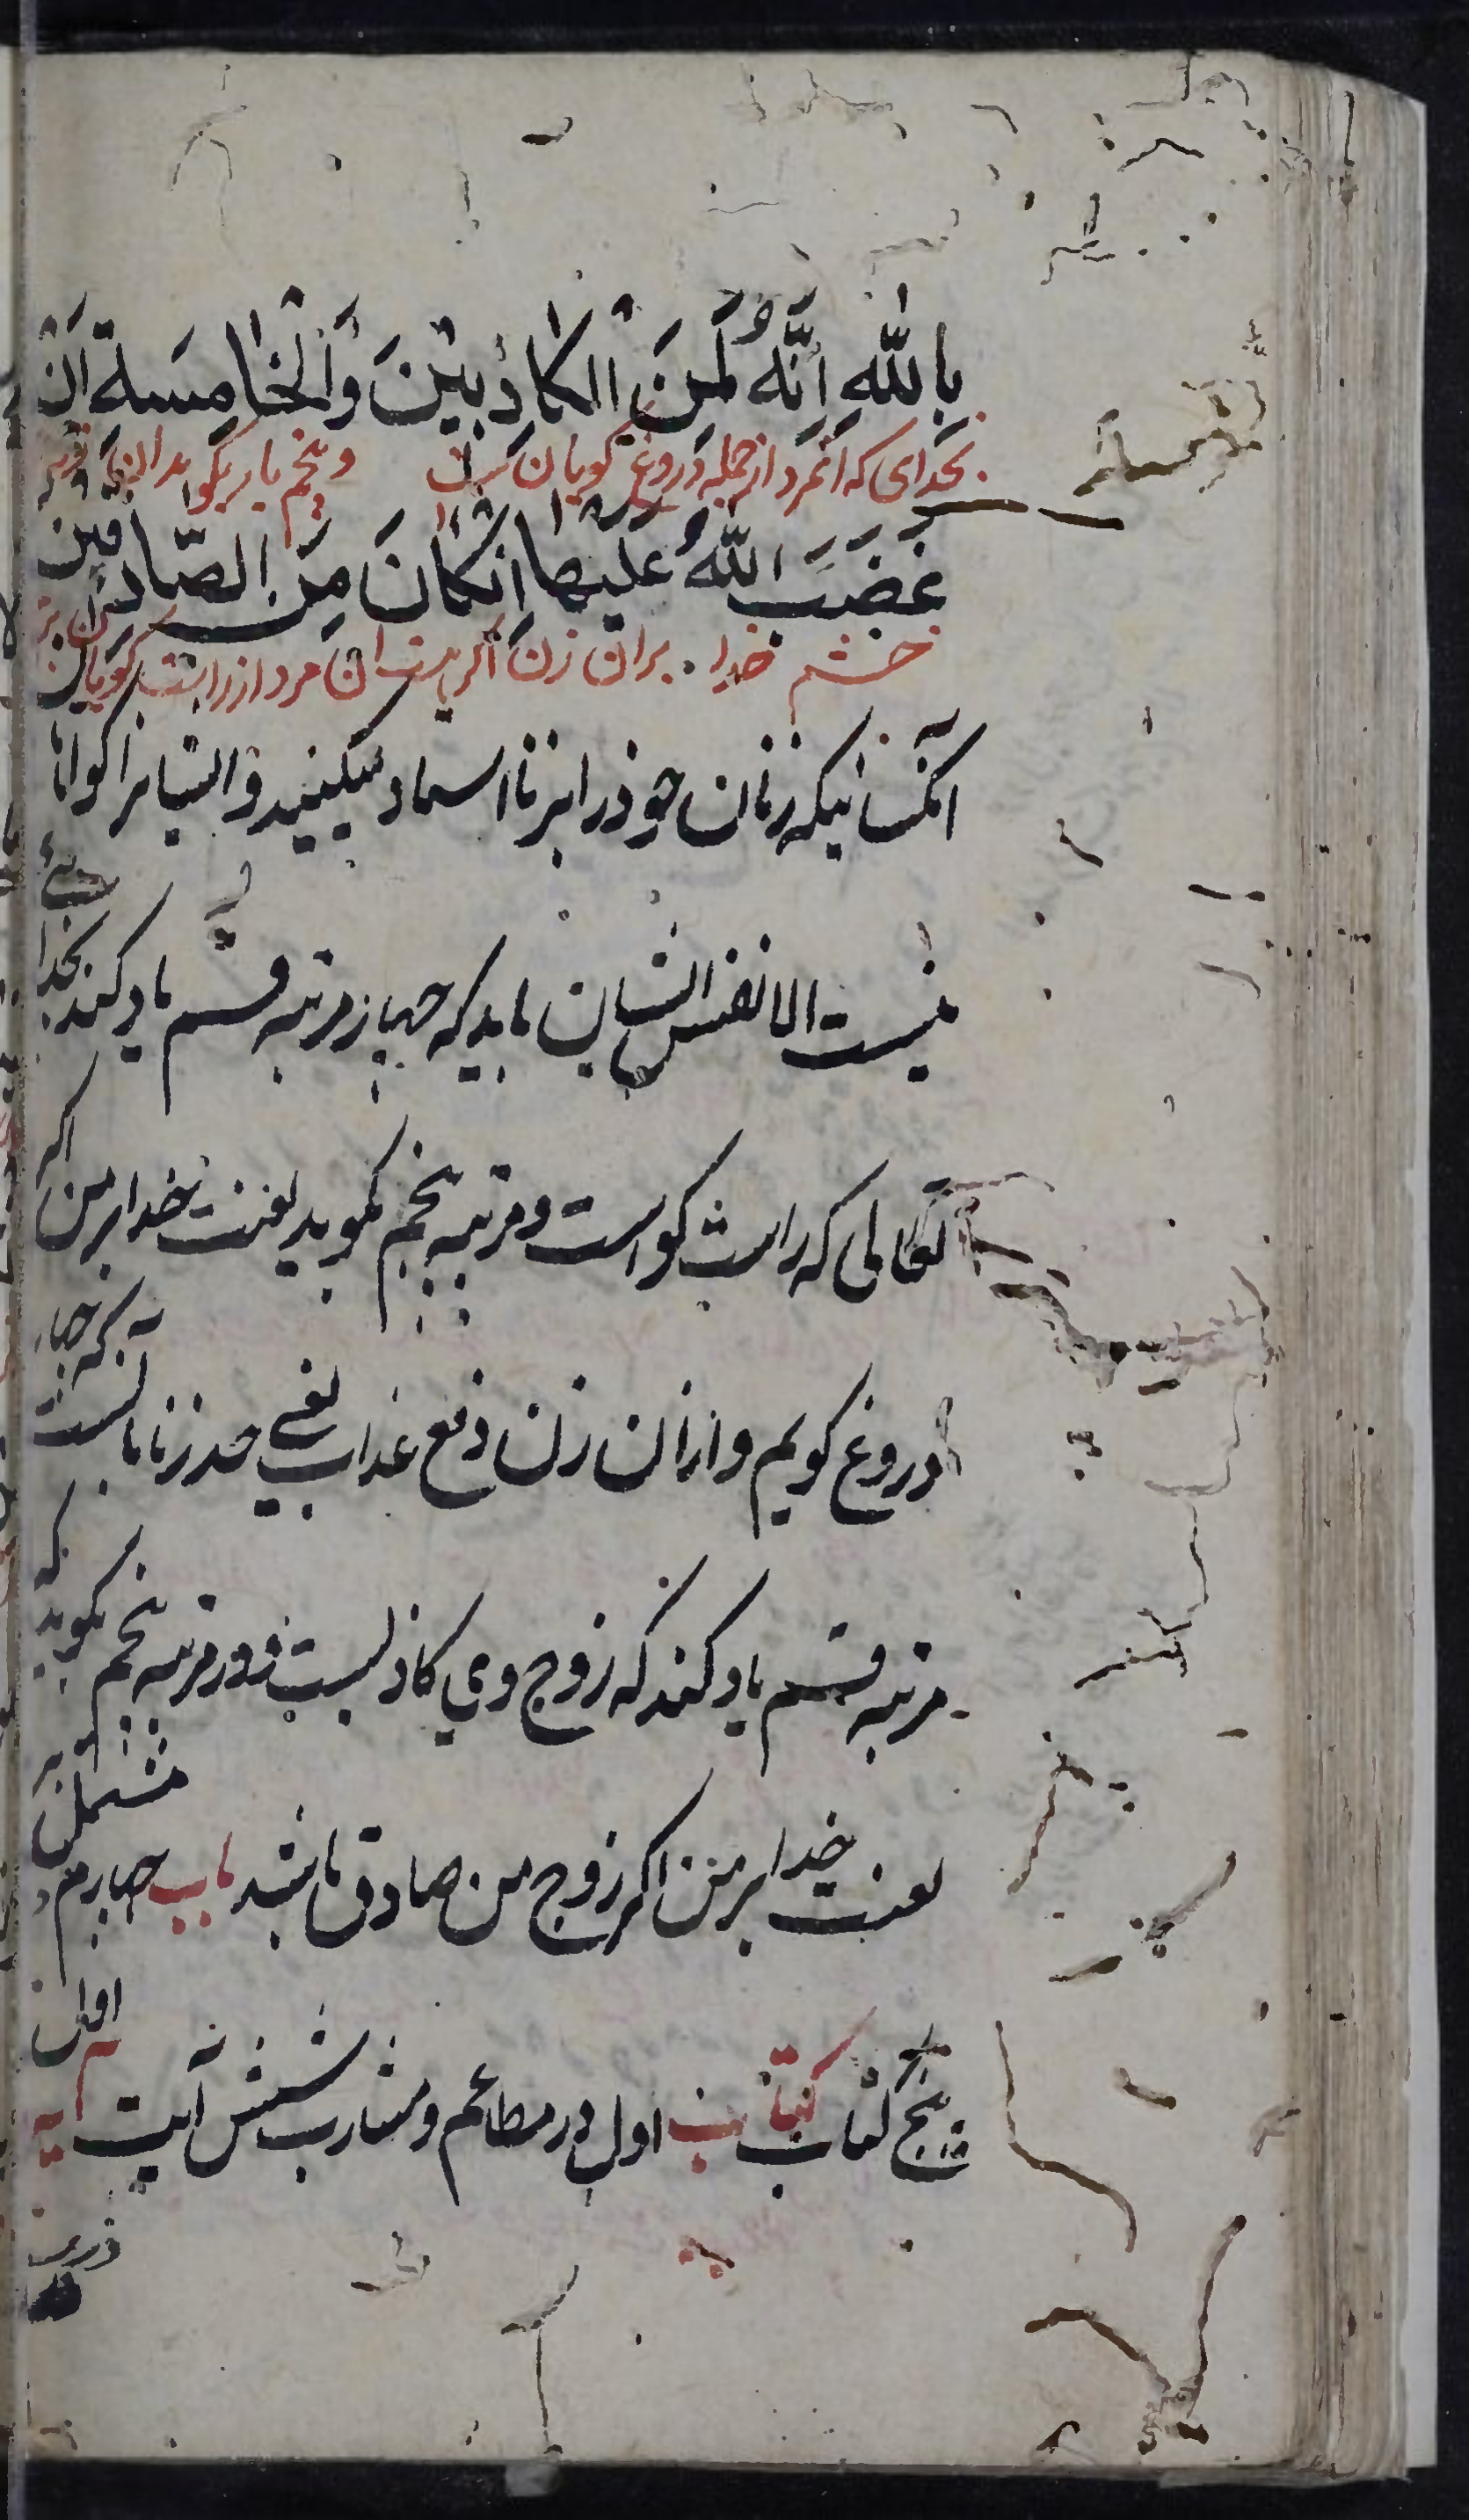 بِاللّٰهِ اِنَّهُ لَمِنَ الْكَاذِبِيْنَ وَالْخَامِسَةَ اَنَّ
بخدای که انمرد از جمله دروغ گویان است و پنجم بار بگوید ان
غَضَبَ اللّٰهِ عَلَيْهَا اِنْكَانَ مِنَ الصَّادِقِين
خشم خدا بران زن اگر هست ان مرد از راست گویان
آنکسانیکه زنان خود را بزنا اسناد میکنند و ایشانرا گواهی
نیست الا نفس ایشان باید که چهار مرتبه قسم یاد کند بخدا
که راست گو است و مرتبه پنجم بگوید لعنت خدا بر من اگر
دروغ گویم و از ان زن دفع عذاب یعنی حد زنا بآنست که چهار
مرتبه قسم یاد کند که زوج وی کاذبست و در مرتبه پنجم بگوید که
لعنت خدا بر من اگر زوج من صادق باشد باب چهارم مشتمل بر
پنج کتاب کتاب اول در مطاعم و مشارب شش آیت اول